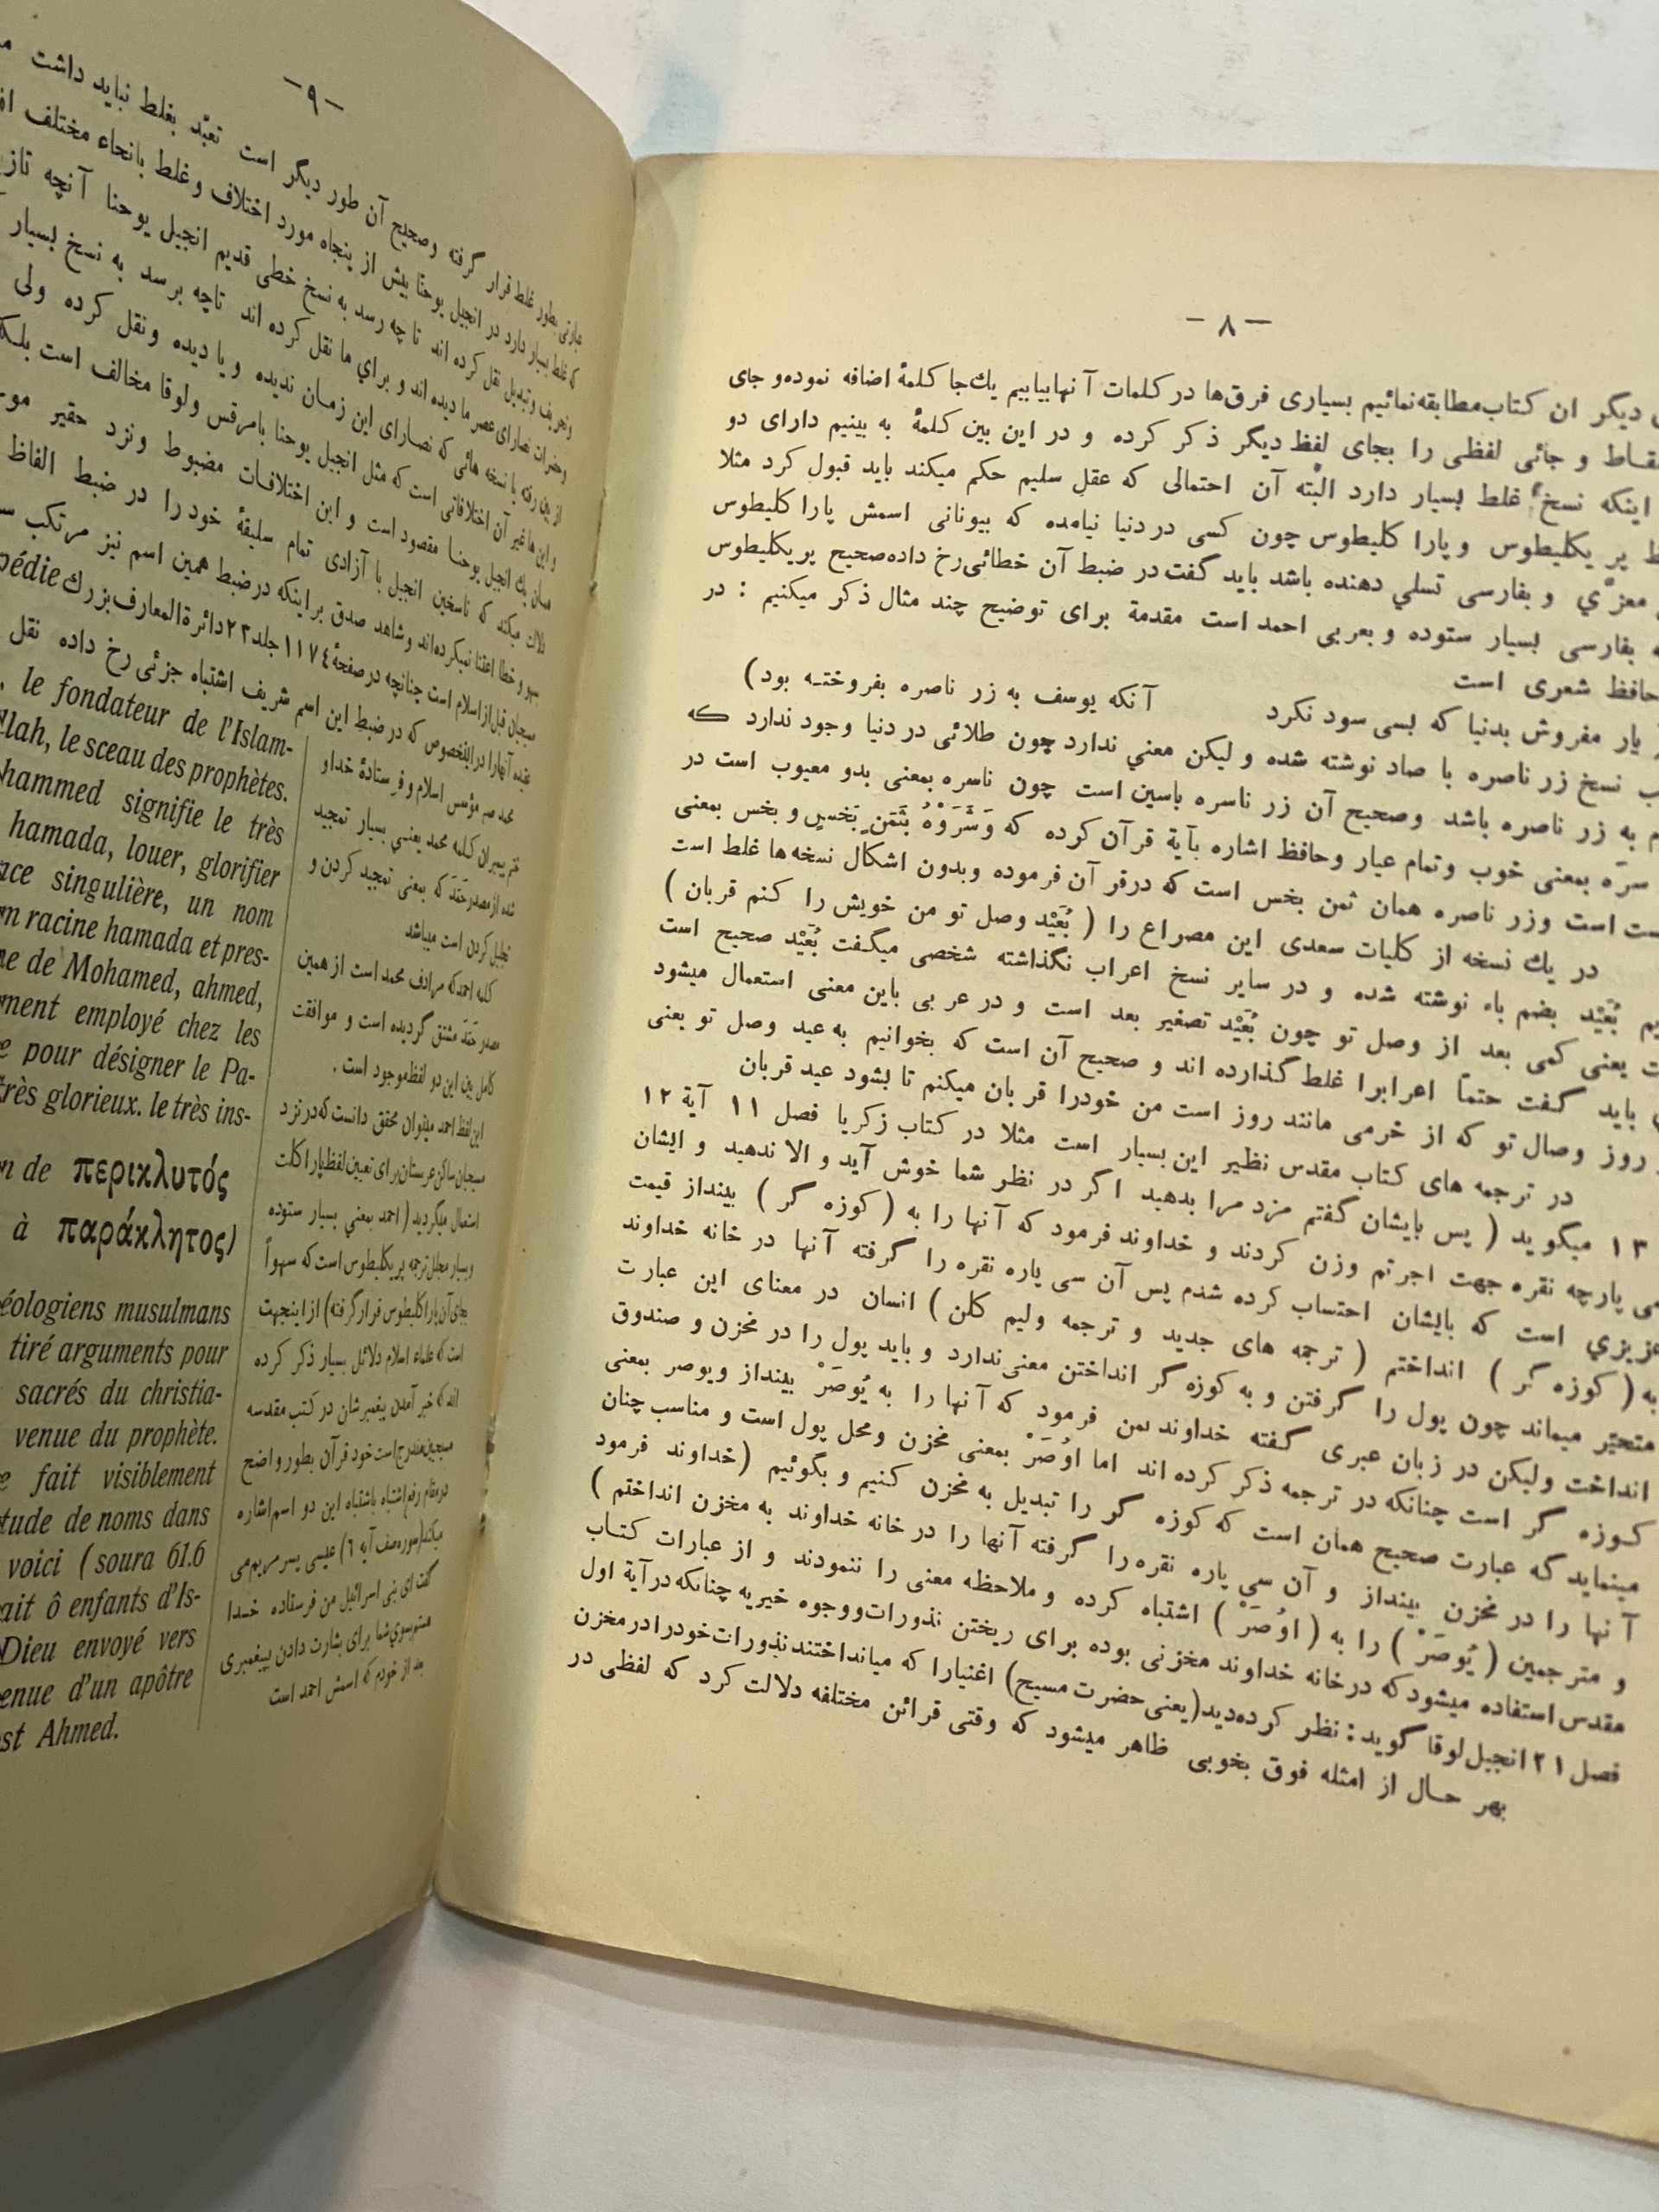 -۸-
دیگر ان کتاب مطابقه نمائیم بسیاری فرق‌ها در کلمات آنها بیابیم یك جا کلمهٔ اضافه نموده و جای
و جائی لفظی را بجای لفظ دیگر ذکر کرده و در این بین کلمهٔ به بینیم دارای دو
اینکه نسخهٔ غلط بسیار دارد البته آن احتمالی که عقل سلیم حکم میکند باید قبول کرد مثلا
پریکلیطوس و پارا کلیطوس چون کسی در دنیا نیامده که بیونانی اسمش پارا کلیطوس
معزّي و بفارسی تسلي دهنده باشد باید گفت در ضبط آن خطائی رخ داده صحیح پریکلیطوس
بفارسی بسیار ستوده و بعربی احمد است مقدمة برای توضیح چند مثال ذکر میکنیم : در
حافظ شعری است
یار مفروش بدنیا که بسی سود نکرد آنکه یوسف به زر ناصره بفروختـه بود)
نسخ زر ناصره با صاد نوشته شده و لیکن معني ندارد چون طلائی در دنیا وجود ندارد که
به زر ناصره باشد وصحیح آن زر ناسره باسین است چون ناسره بمعنی بدو معیوب است در
سرّه بمعنی خوب وتمام عیار وحافظ اشاره بآیة قرآن کرده که وَشَرَوْهُ بِثَمَنٍ بَخْسٍ و بخس بمعنی
است وزر ناصره همان ثمن بخس است که درقرآن فرموده وبدون اشکال نسخه‌ها غلط است
در یك نسخه از کلیات سعدی این مصراع را ( بُعَیْد وصل تو من خویش را کنم قربان )
بُعَیْد بضم باء نوشته شده و در سایر نسخ اعراب نگذاشته شخصی میگفت بُعَیْد صحیح است
یعنی کمی بعد از وصل تو چون بُعَیْد تصغیر بعد است و در عربی باین معنی استعمال میشود
باید گفت حتماً اعرابرا غلط گذارده اند و صحیح آن است که بخوانیم به عید وصل تو یعنی
روز وصال تو که از خرمی مانند روز است من خودرا قربان میکنم تا بشود عید قربان
در ترجمه های کتاب مقدس نظیر این بسیار است مثلا در کتاب زکریا فصل ۱۱ آیة ۱۲
۱۳ میگوید ( پس بایشان گفتم مزد مرا بدهید اگر در نظر شما خوش آید و الا ندهید و ایشان
پارچه نقره جهت اجرتم وزن کردند و خداوند فرمود که آنها را به ( کوزه گر ) بینداز قیمت
عزیزي است که بایشان احتساب کرده شدم پس آن سی پاره نقره را گرفته آنها در خانه خداوند
به ( کوزه گر ) انداختم ( ترجمه های جدید و ترجمه ولیم کلن ) انسان در معنای این عبارت
متحیّر میماند چون پول را گرفتن و به کوزه گر انداختن معنی ندارد و باید پول را در مخزن و صندوق
انداخت ولیکن در زبان عبری گفته خداوند بمن فرمود که آنها را به یُوصَرْ بینداز ویوصر بمعنی
کـوزه گر است چنانکه در ترجمه ذکر کرده اند اما اوُصَرْ بمعنی مخزن ومحل پول است و مناسب چنان
مینماید که عبارت صحیح همان است که کوزه گر را تبدیل به مخزن کنیم و بگوئیم (خداوند فرمود
آنها را در مخزن بینداز و آن سی پاره نقره را گرفته آنها را در خانه خداوند به مخزن انداختم )
و مترجمین ( یُوصَرْ ) را به ( اوُصَرْ ) اشتباه کرده و ملاحظه معنی را ننمودند و از عبارات کتـاب
مقدس استفاده میشود که درخانه خداوند مخزنی بوده برای ریختن نذورات ووجوه خیریه چنانکه درآیة اول
فصل ۲۱ انجیل لوقا گوید : نظر کرده دید (یعنی حضرت مسیح) اغنیارا که میانداختند نذورات خودرا درمخزن
بهر حـال از امثله فوق بخوبی ظاهر میشود که وقتی قرائن مختلفه دلالت کرد که لفظی در
-۹-
عبارتی بطور غلط قرار گرفته وصحیح آن طور دیگر است تعبّد بغلط نباید داشت
که غلط بسیار دارد در انجیل یوحنّا بیش از پنجاه مورد اختلاف و غلط بانحاء مختلف
وتحریف وتبدیل نقل کرده اند تا چه رسد به نسخ خطی قدیم انجیل یوحنا آنچه
وحضرات نصارای عصر ما دیده اند و براي ما نقل کرده اند تاچه برسد به نسخ بسیار
از بین رفته یا نسخه هائی که نصارای این زمـان ندیده و یا دیده ونقل کرده ولی
و این ها غیر آن اختلافاتی است که مثل انجیل یوحنا بامرقس ولوقا مخالف است
میان یك انجیل یوحنـا مقصود است و این اختلافـات مضبوط ونزد حقیر
دلالت میکند که ناسخین انجیل با آزادی تمام سلیقهٔ خود را در ضبط الفاظ
سهو و خطا اعتنا نمیکرده‌اند وشاهد صدق بر اینکه درضبط همین اسم نیز مرتکب
مسیحیان قبل از اسلام است چنانچه در صفحهٔ ۱۱۷٤ جلد ۲۳ دائرة‌المعارف بزرك pédie
عقیده آنها را در این‌خصوص که در ضبط این اسم شریف اشتباه جزئی رخ داده نقل
محمد صم مؤسس اسلام و فرستادهٔ خدا و
ختم پیبران کلمه محمد یعني بسیار تمجید
شده از مصدر حَمَدَ که بمعنی تمجید کردن و
تجلیل کردن است میباشد
کلمه احمد که مرادف محمد است از همین
مصدر حَمَدَ مشتق گردیده است و موافقت
کامل بین این دو لفظ موجود است .
این لفظ احمد میتوان محقق دانست که در نزد
مسیحیان ساکن عربستان برای تعیین لفظ پارا کلت
استعمال میگردید ( احمد بمعني بسیار ستوده
و بسیار مجلل ترجمه پریکلیطوس است که سهواً
بجای آن پاراکلیطوس قرار گرفته) از اینجهت
است که علماء اسلام دلائل بسیار ذکر کرده
اند که خبر آمدن پیغمبرشان در کتب مقدسه
مسیحیان مندرج است خود قرآن بطور واضح
در مقام رفع اشتباه باشتباه این دو اسم اشاره
میکند (سوره صف آیه ٦) عیسی پسر مریم می
گفت ای بنی اسرائیل من فرستاده خـدا
هستم بسوي شما برای بشارت دادن بپیغمبری
بعد از خودم که اسمش احمد است
, le fondateur de l'Islam-
llah, le sceau des prophètes.
hammed signifie le très
hamada, louer, glorifier
ce singulière, un nom
racine hamada et pres-
de Mohamed, ahmed,
ment employé chez les
pour désigner le Pa-
très glorieux. le très ins-
de περικλυτός
à παράκλητος)
éologiens musulmans
tiré arguments pour
sacrés du christia-
venue du prophète.
fait visiblement
tude de noms dans
voici ( soura 61.6
ait ô enfants d'Is-
Dieu envoyé vers
enue d'un apôtre
st Ahmed.